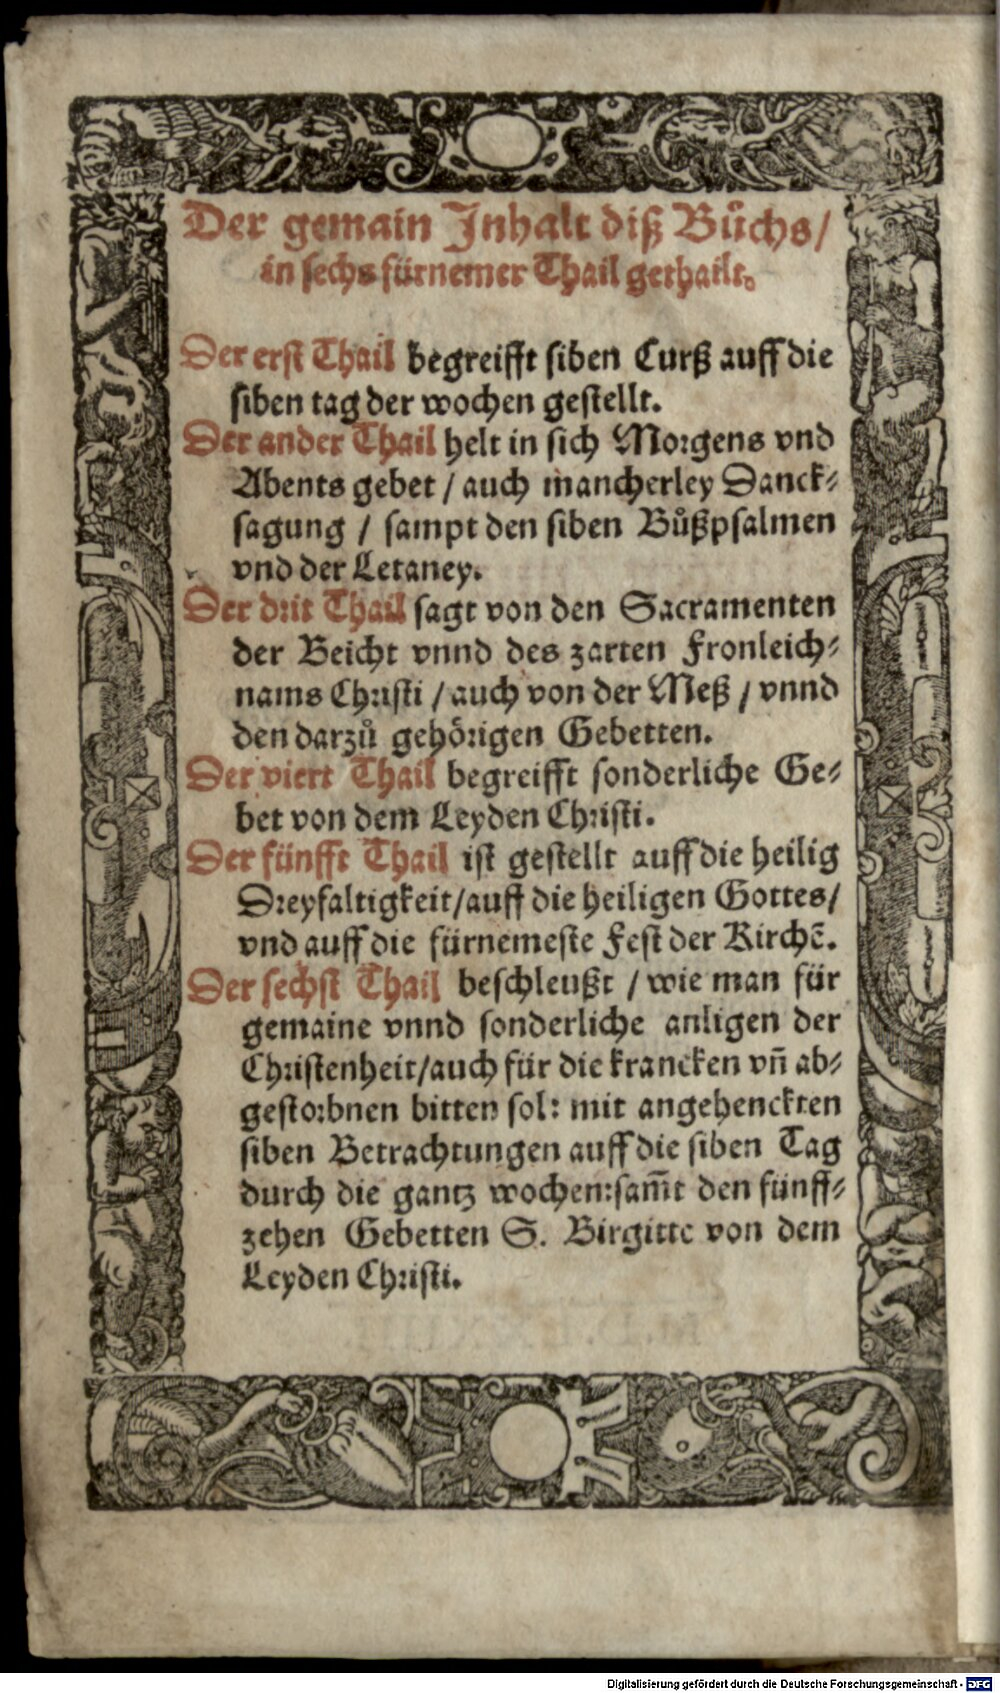 Der gemain Inhalt diß Bůchs /
in sechs fürnemer Thail gethailt.
Der erst Thail begreifft siben Curß auff die
siben tag der wochen gestellt.
Der ander Thail helt in sich Morgens vnd
Abents gebet / auch mancherley Danck-
sagung / sampt den siben Bůßpsalmen
vnd der Letaney.
Der drit Thail sagt von den Sacramenten
der Beicht vnnd des zarten Fronleich-
nams Christi / auch von der Meß / vnnd
den darzů gehörigen Gebetten.
Der viert Thail begreifft sonderliche Ge-
bet von dem Leyden Christi.
Der fünfft Thail ist gestellt auff die heilig
Dreyfaltigkeit/auff die heiligen Gottes/
vnd auff die fürnemeste Fest der Kirchē.
Der sechst Thail beschleußt / wie man für
gemaine vnnd sonderliche anligen der
Christenheit/auch für die krancken vn̄ ab-
gestorbnen bitten sol: mit angehenckten
siben Betrachtungen auff die siben Tag
durch die gantz wochen:sam̄t den fünff-
zehen Gebetten S. Birgitte von dem
Leyden Christi.
Digitalisierung gefördert durch die Deutsche Forschungsgemeinschaft - DFG